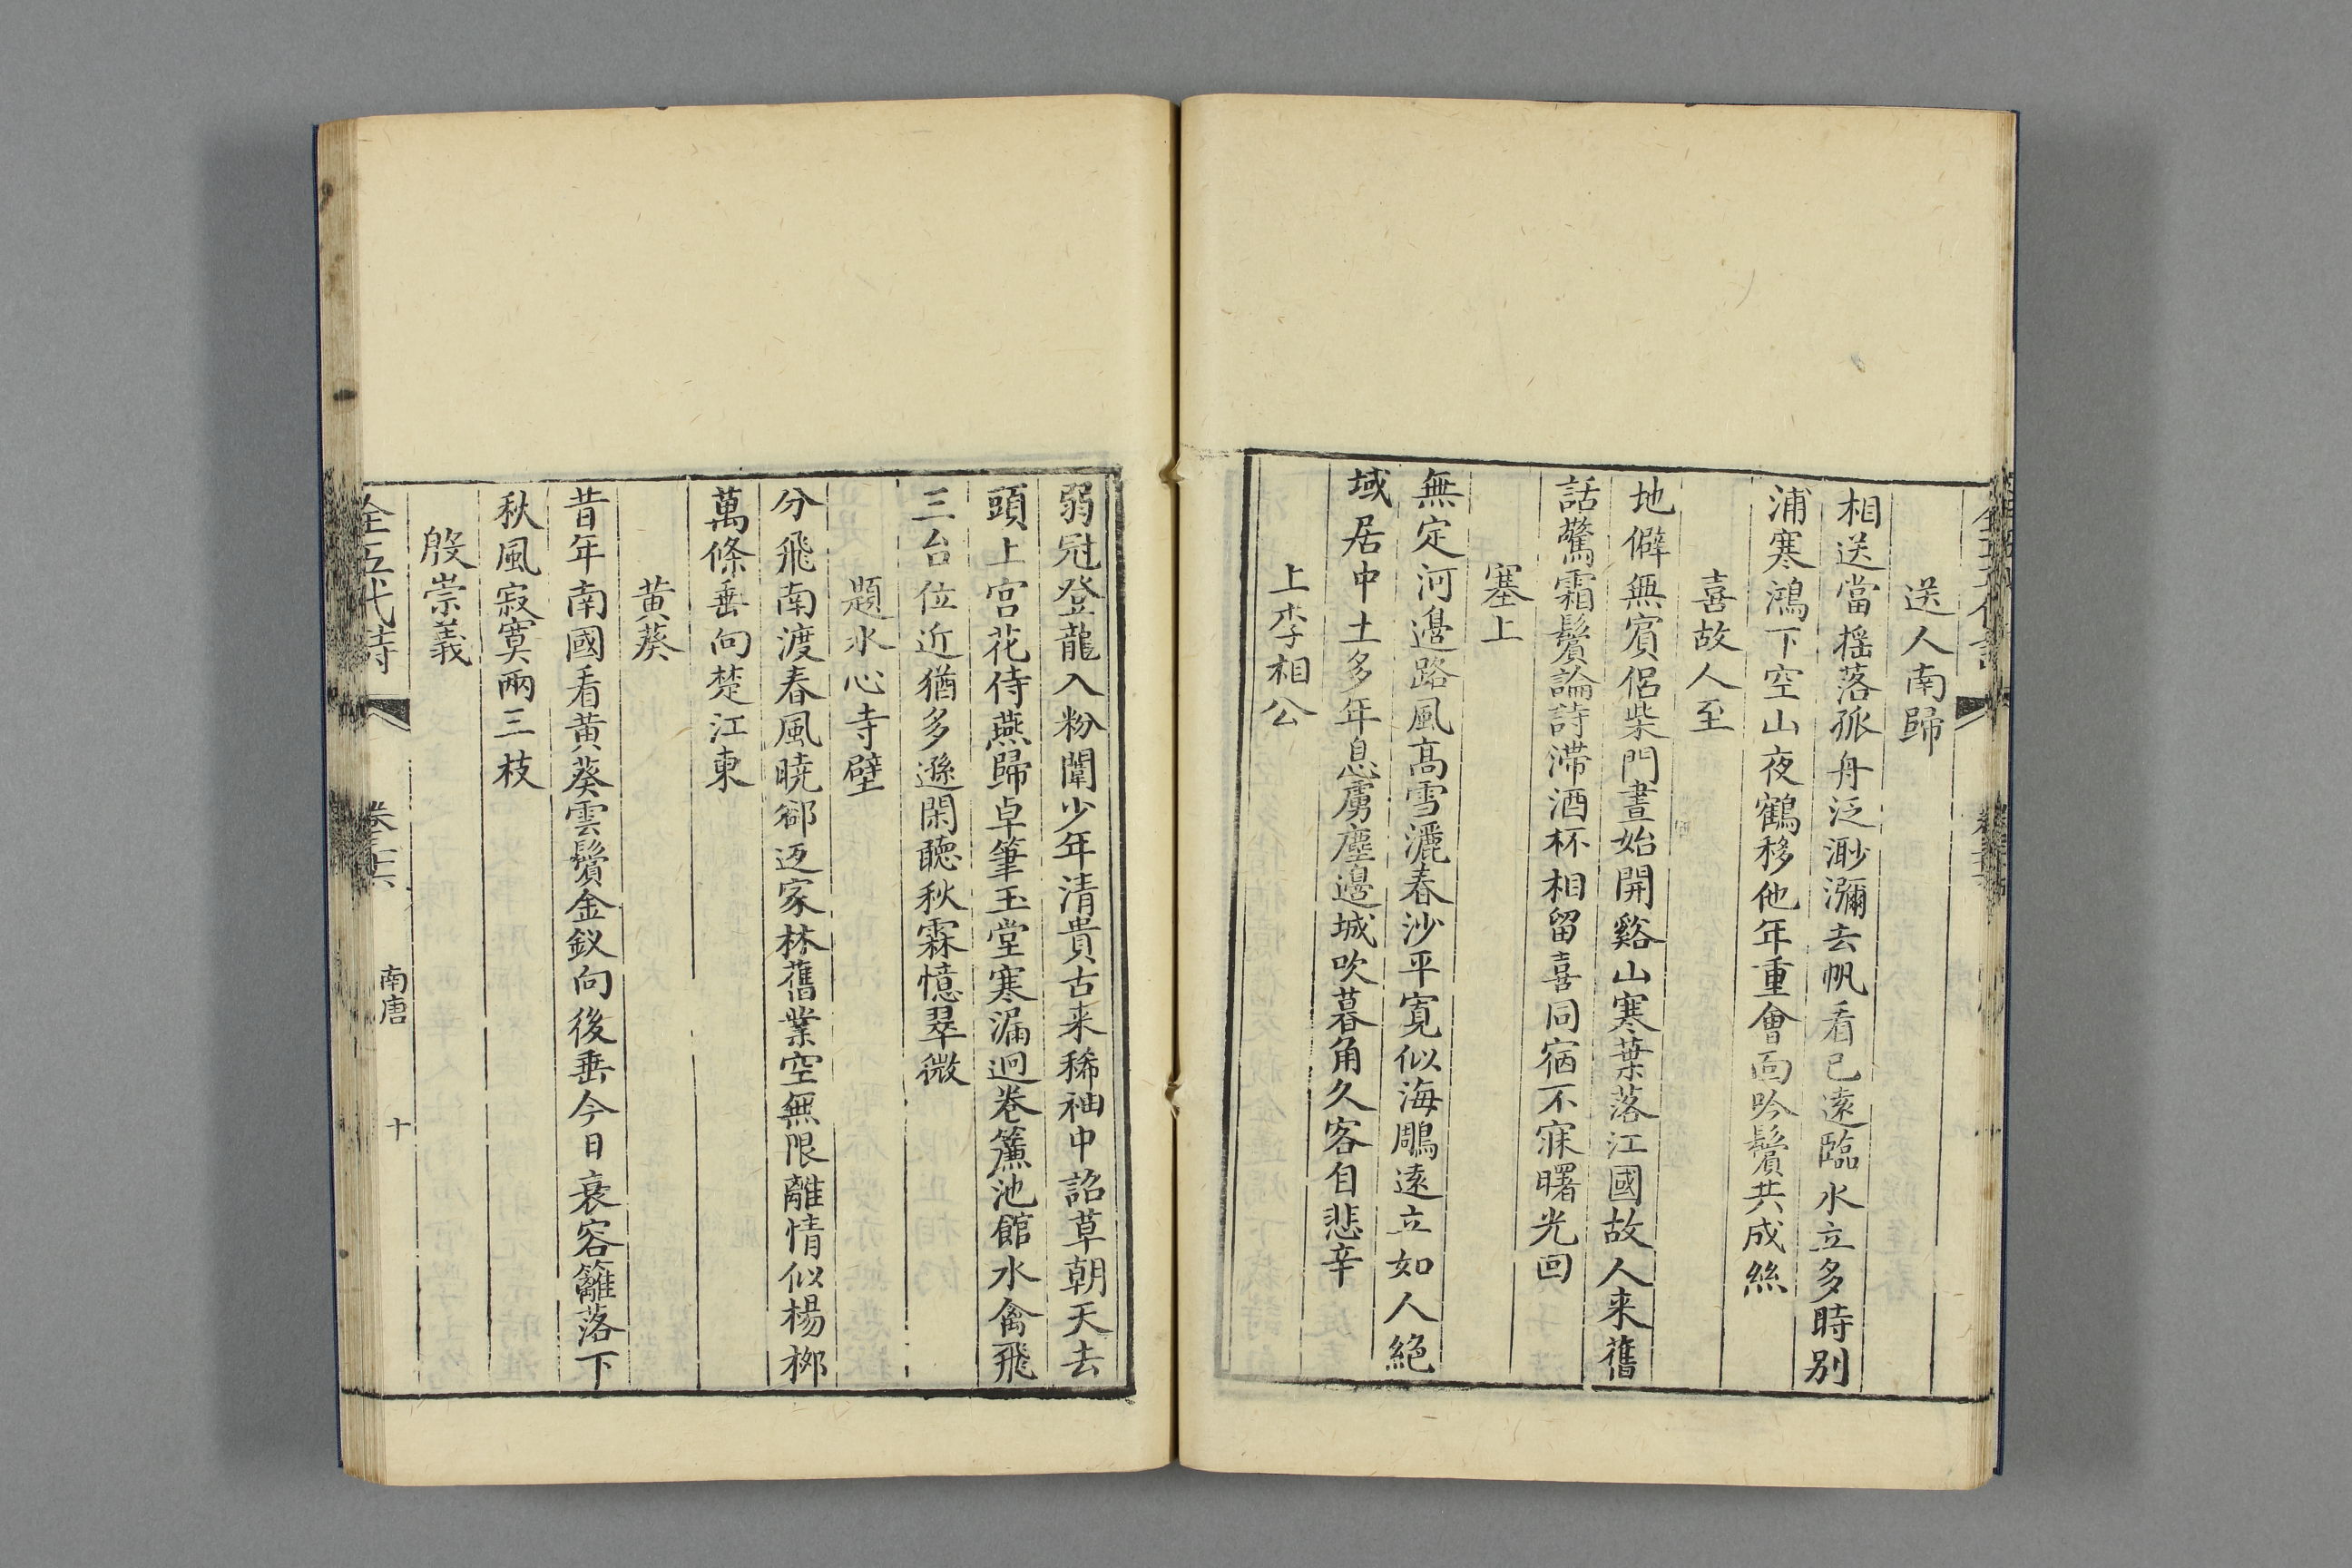 送人南歸
相送當揺落孤舟泛渺瀰去帆看已遠臨水立多時別
浦寒鴻下空山夜鶴移他年重會面吟鬢共成絲
喜故人至
地僻無賓侶柴門晝始開谿山寒葉落江國故人来舊
話驚霜鬢論詩滯酒杯相留喜同宿不寐曙光回
塞上
無定河邉路風髙雪灑春沙平寛似海鵰遠立如人絕
域居中土多年息虜塵邉城吹暮角久客自悲辛
上李相公
弱冠登龍入粉闈少年清貴古来稀袖中詔草朝天去
頭上宫花侍燕歸卓筆玉堂寒漏迥卷簾池館水禽飛
三台位近猶多遜閑聽秋霖憶翠微
題水心寺壁
分飛南渡春風曉郤返家林舊業空無限離情似楊栁
萬條垂向楚江東
黄葵
昔年南國看黄葵雲鬢金釵向後垂今日衰容籬落下
秋風寂寞兩三枝
殷崇義
全五代詩
南唐
十